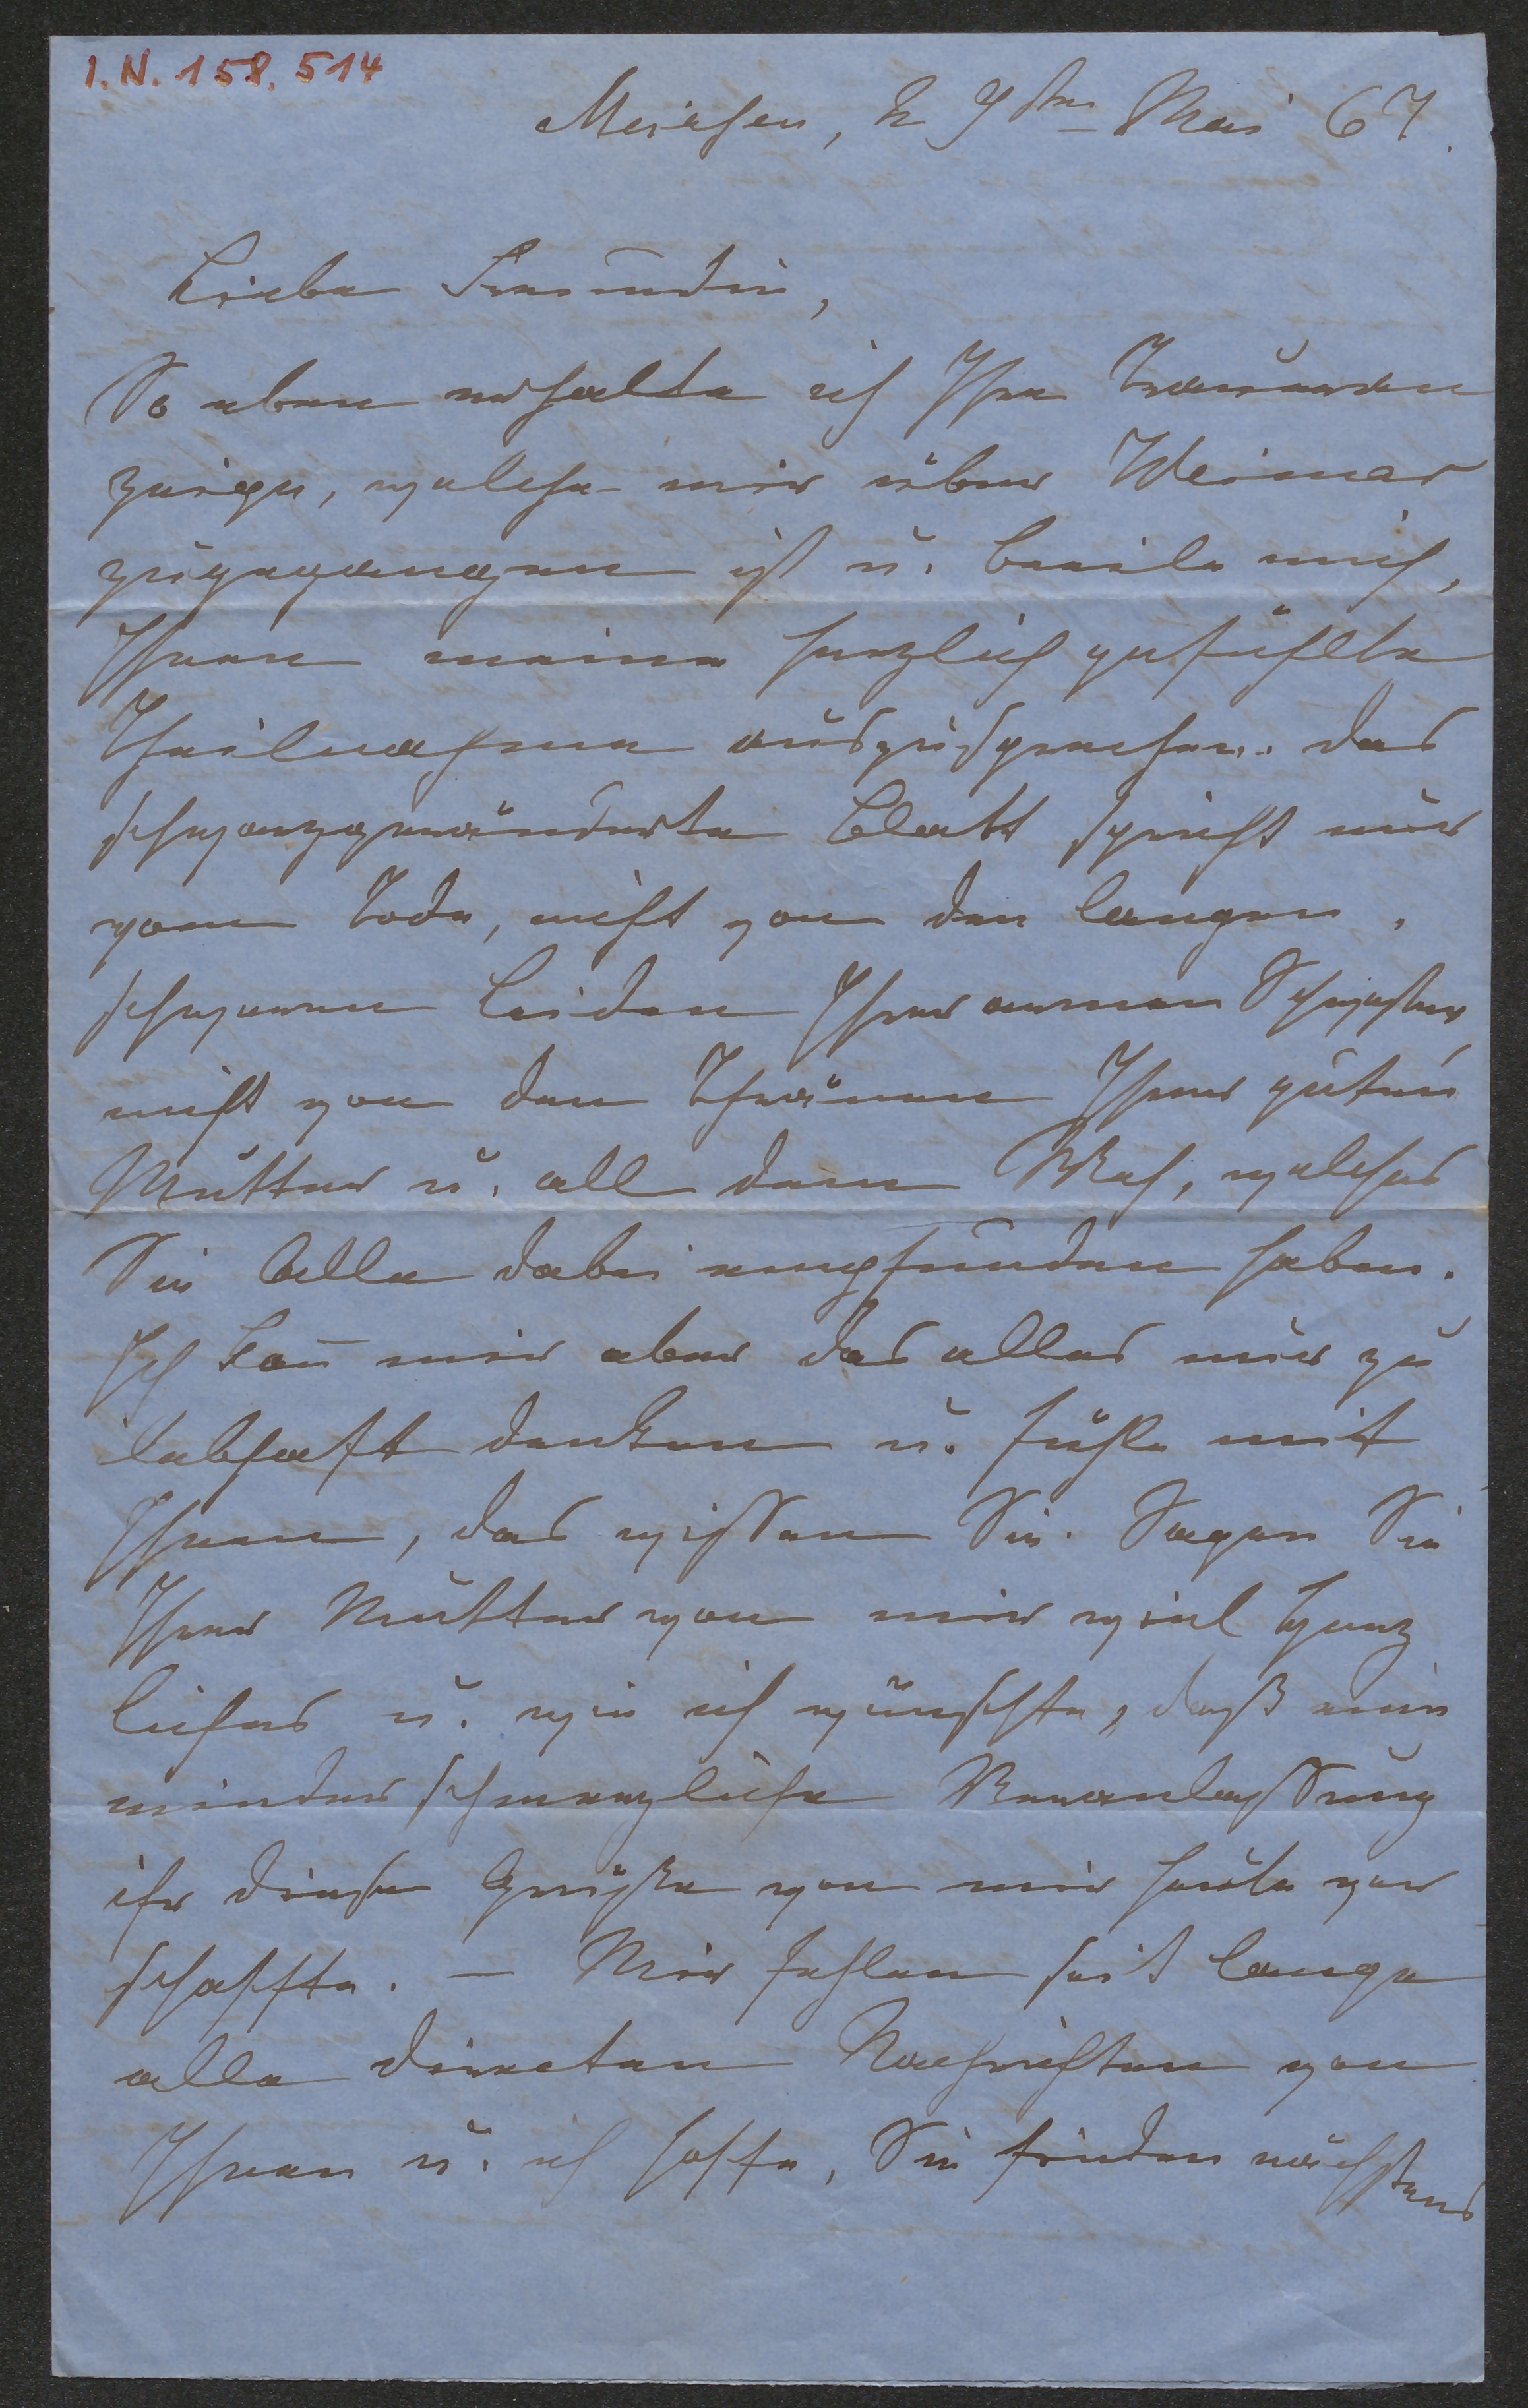 I.N. 158.514
Meissen, d 9ten Mai 67.
Liebe Freundin,
So eben erhalte ich Ihre Traueran
zeige, welche mir über Weimar
zugegangen ist u. beeile mich,
Ihnen meine herzlich gefühlte
Theilnahme auszusprechen. Das
schwarzgeränderte Blatt spricht nur
vom Tode, nicht von den langen,
schweren Leiden Ihrer armen Schwester,
nicht von den Thränen Ihrer guten
Mutter u. all dem Weh, welches
Sie Alle dabei empfunden haben.
Ich kan̄ mir aber das alles nur zu
lebhaft denken u. fühle mit
Ihnen, das wissen Sie. Sagen Sie
Ihrer Mutter von mir viel Herz
liches u. wie ich wünschte, daß eine
minder schmerzliche Veranlassung
ihr diese Grüße von mir heute ver
schaffte. — Mir fehlen seit lange
alle directen Nachrichten von
Ihnen u. ich hoffe, Sie finden nächstens